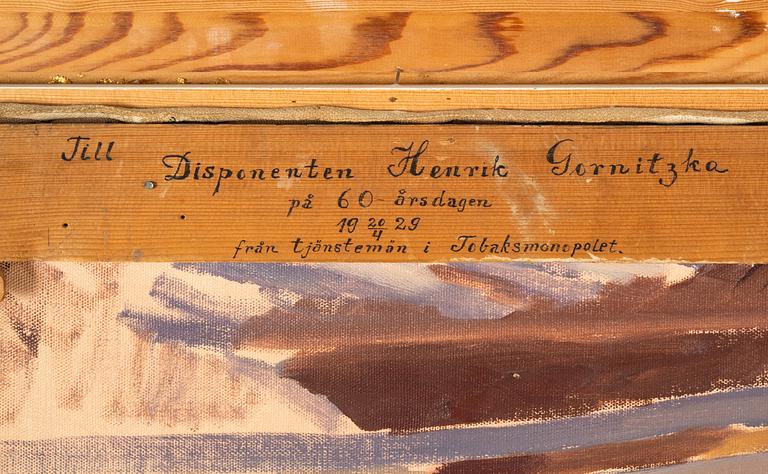 Till Disponenten Henrik Gornitzka
på 60-årsdagen
19 20/4 29
från tjänstemän i Tobaksmonopolet.